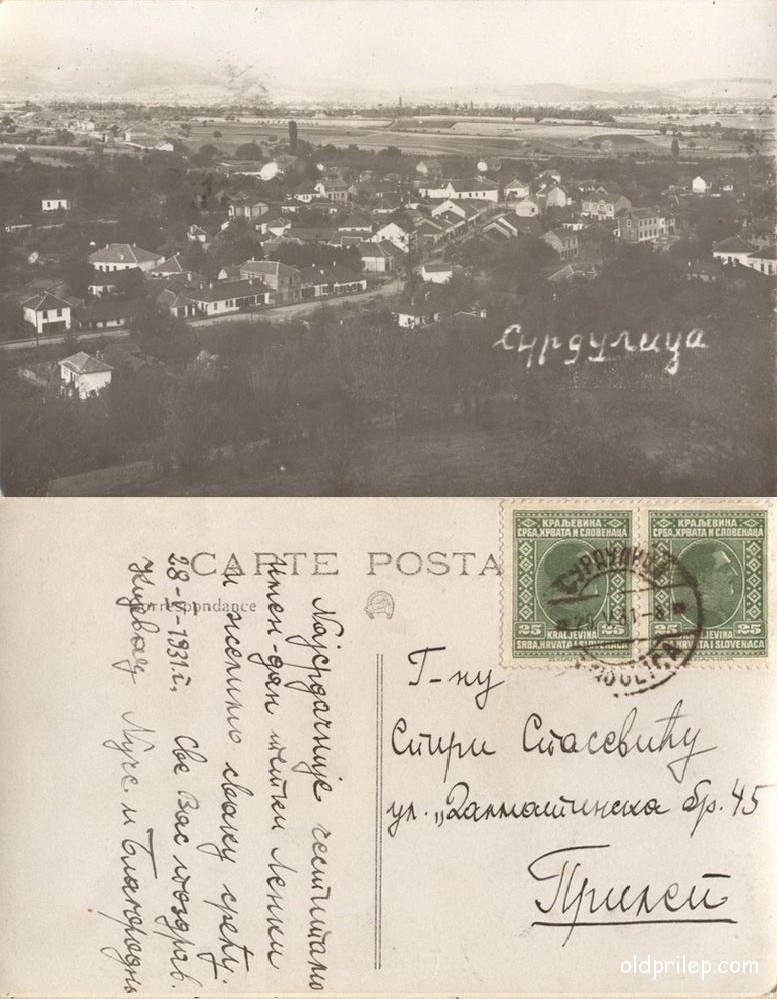 Сурдулица
CARTE POSTA
Correspondance
КРАЉЕВИНА
СРБА, ХРВАТА И СЛОВЕНАЦА
25 25
KRALJEVINA
SRBA, HRVATA I SLOVENACA
КРАЉЕВИНА
СРБА, ХРВАТА И СЛОВЕНАЦА
25 25
KRALJEVINA
SRBA, HRVATA I SLOVENACA
СУРДУЛИЦА
Г-ну
Спири Стасевићу
ул. „Далматинска бр. 45
Прилеп
Најсрдачније честитамо
имен-дан тетки Ленки
и желимо сваку срећу.
28-V-1931 г. Све Вас поздрав.
и Благородна
oldprilep.com